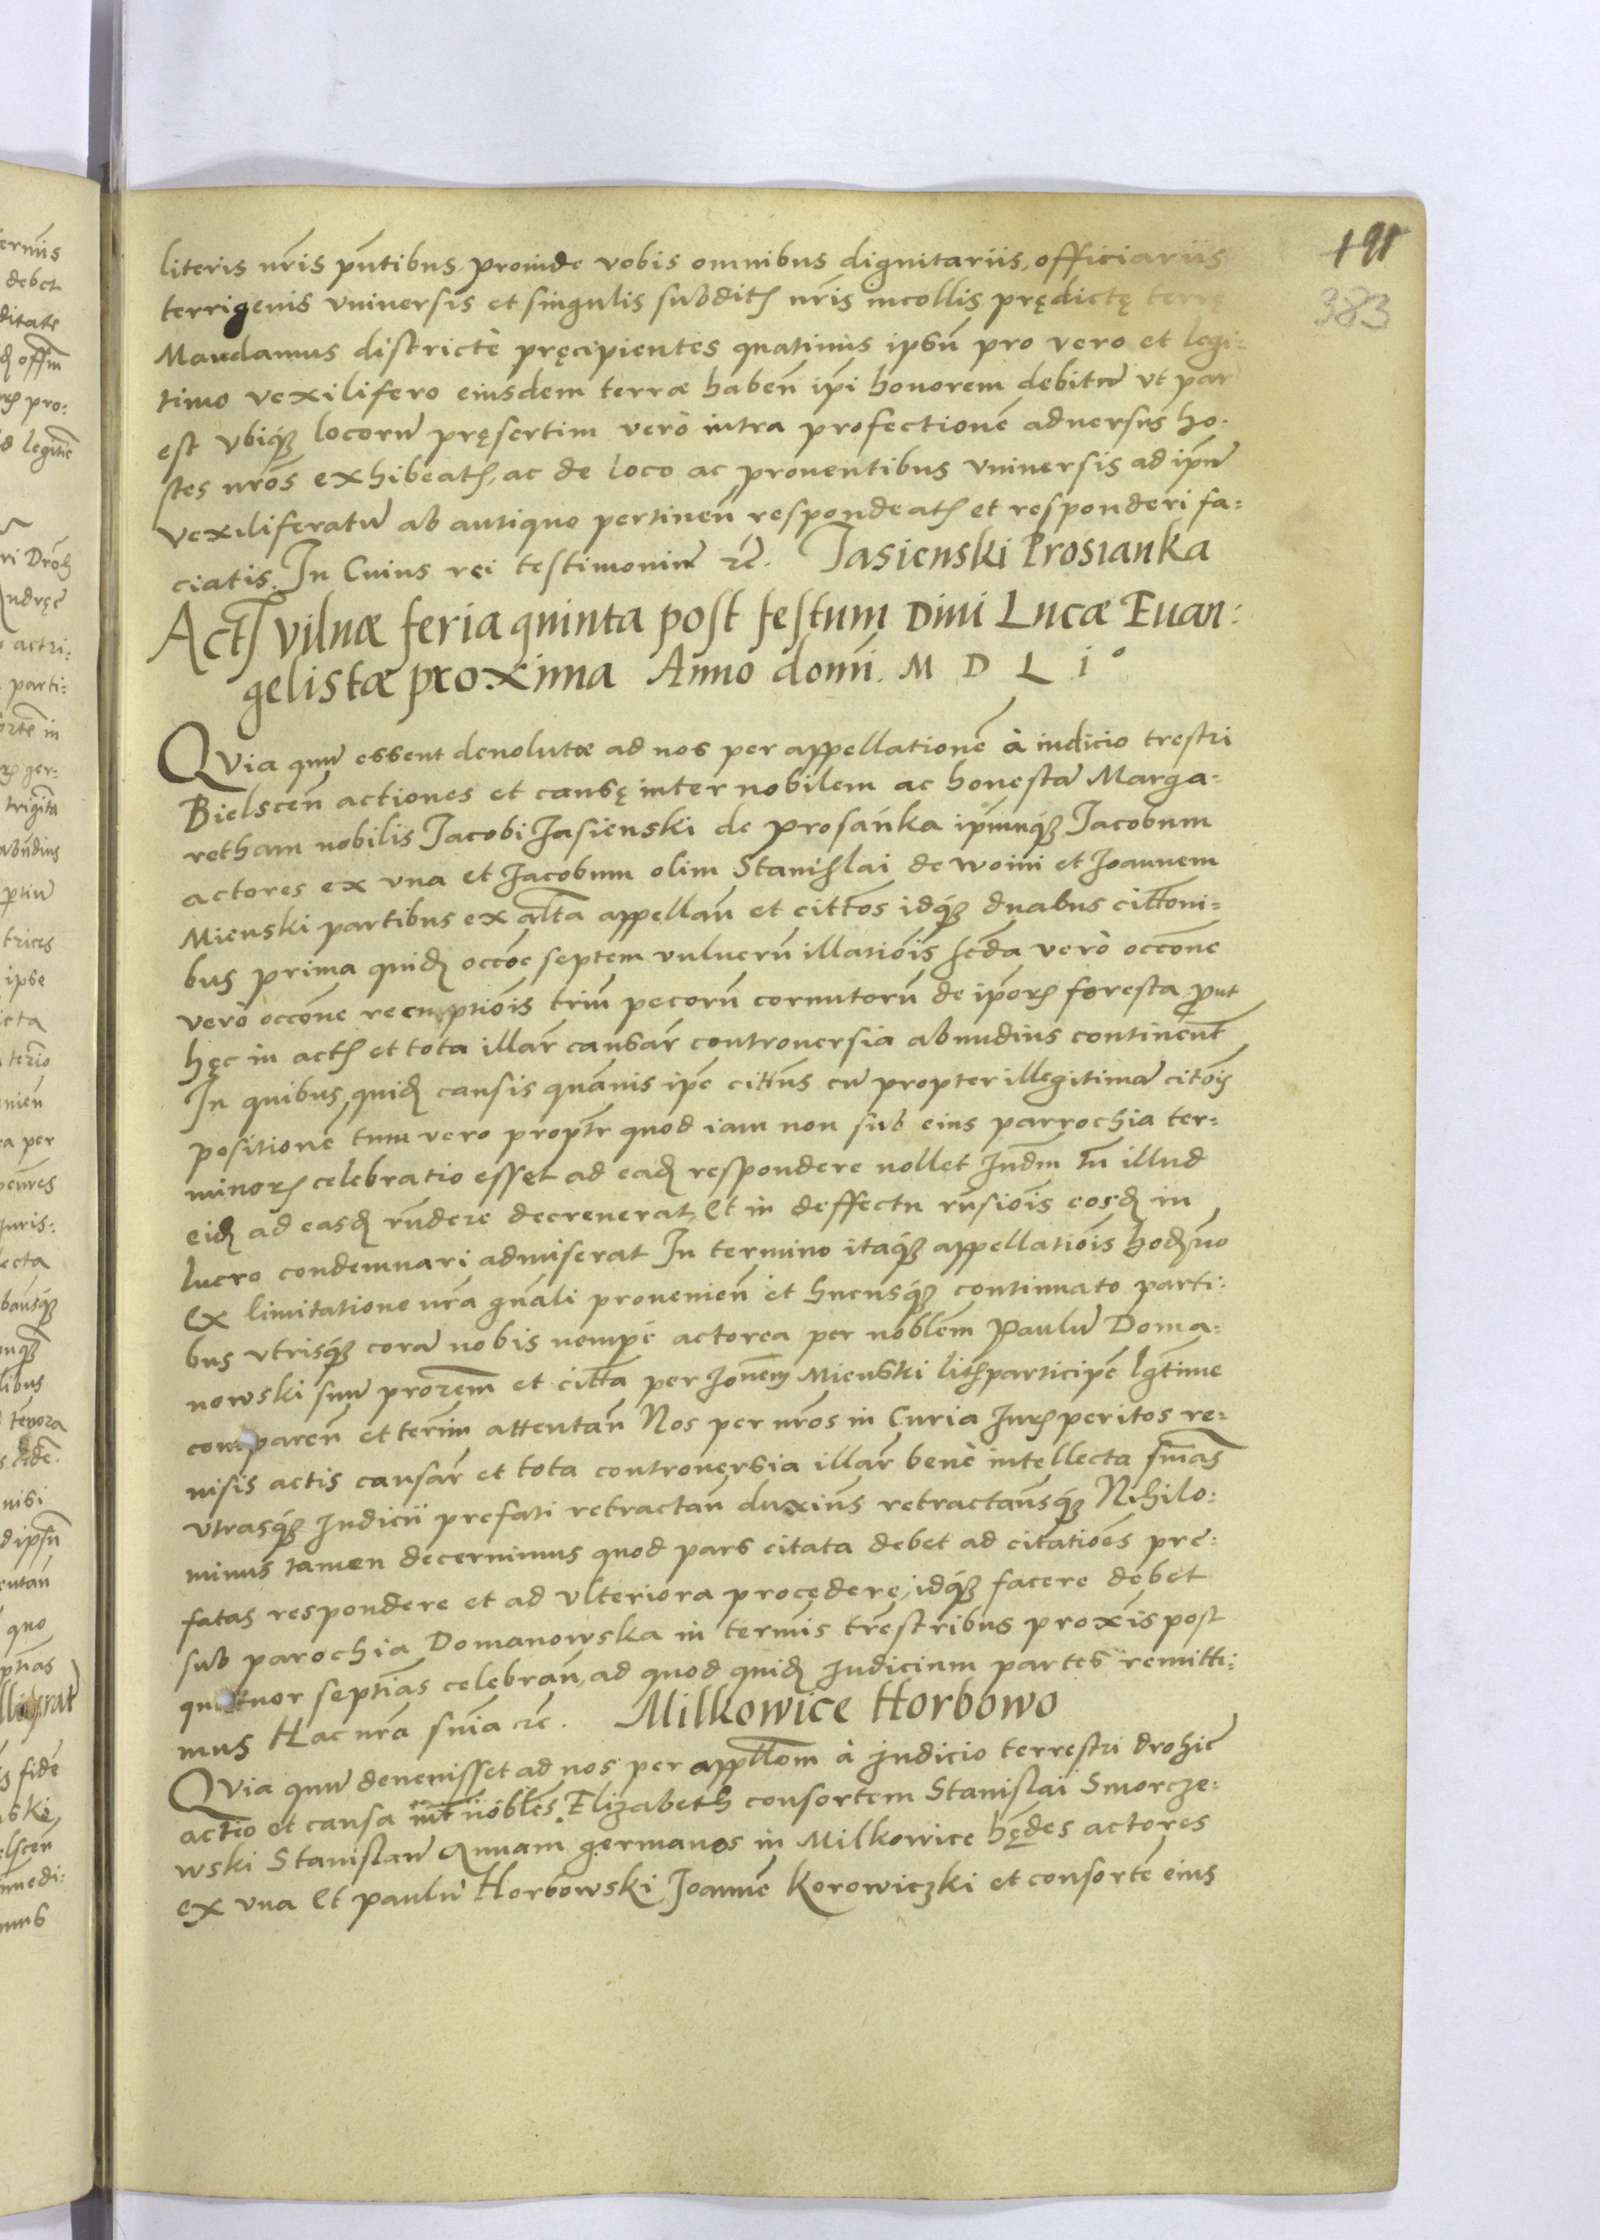 191
383
literis nr̃is pñtibus, proinde vobis omnibus dignitariis, officiariis
terrigenis vniuersis et singulis subditꝭ nr̃is incollis prędictę terrę
Mandamus districtè pręcipientes quatinus ipsũ pro vero et legi-
timo vexilifero eiusdem terræ habeñ ip̃i honorem debitũ vt par
est vbiqꝫ locorũ pręsertim verò intra profectionẽ aduersus ho-
stes nr̃os exhibeatꝭ, ac de loco ac prouentibus vniuersis ad ip̃ũ
vexiliferatũ ab antiquo pertineñ respondeatꝭ et responderi fa-
ciatis. In Cuius rei testimoniũ ꝛc̃. Jasienski Prosianka
Actꝭ vilnæ feria quinta post festum Diui Lucæ Euan:
gelistæ proxima Anno domĩ. M D L i°
Quia quũ essent deuolutæ ad nos per appellationẽ à iudicio tr̃estri
Bielsceñ actiones et causę inter nobilem ac honestã Marga-
retham nobilis Jacobi Jasienski de Prosanka ip̃umqꝫ Jacobum
actores ex vna et Jacobum olim Stanislai de woini et Joannem
Mienski partibus ex alt̃a appellañ et citt̃os idqꝫ duabus citt̃oni-
bus prima quidẽ occõe septem vulnerũ illatiõis sc̃da verò occõne
verò occõne recuptiõis triũ pecorũ cornutorũ de ip̃orꝭ foresta ꝓut
hęc in actꝭ et tota illar̃ causar̃ controuersia abundius continent̃
In quibus quidẽ causis quãuis ip̃e citt̃us cũ propter illegitimã citõis
positionẽ tum vero propt̃r quod iam non sub eius parrochia ter-
minorꝭ celebratio esset ad eadẽ respondere nollet Judm̃ tñ illud
eidẽ ad easdẽ rñdere decreuerat, Et in deffectu rñsiõis eosdẽ in
lucro condemnari admiserat In termino itaqꝫ appellatiõis hodierno
Ex limitatione nr̃a gñali prouenieñ et hucusqꝫ continuato parti-
bus vtrisqꝫ corã nobis nempè actorea per noblem̃ Paulũ Doma-
nowski suũ pro̅rem̃ et citt̃a per Joñem Mienski litꝭ participẽ lg̃time
compareñ et term̃ attentañ Nos per nr̃os in Curia Jurꝭ peritos re-
uisis actis causar̃ et tota controuersia illar̃ benè intellecta sñias
vtrasqꝫ Judicii prefati retractañ duximus retractamusqꝫ Nihilo-
minus tamen decernimus quod pars citata debet ad citatiões pre-
fatas respondere et ad vlteriora procędere, idqꝫ facere debet
sub parochia Domanowska in termĩs tr̃estribus proxĩs post
quatuor septĩas celebrañ, ad quod quidẽ Judicium partes remitti-
mus Hac nr̃a sñia ꝛc. Milkowice Horbowo
Quia quũ deuenisset ad nos per applt̃om à judicio terrestri drohic̃
actio et causa int̃ nobles̃ Elizabeth consortem Stanislai Smorcze-
wski Stanislaũ Annam germanos in Milkowice hędes actores
ex vna Et paulũ Horbowski Joannẽ Korowiczki et consortẽ eius